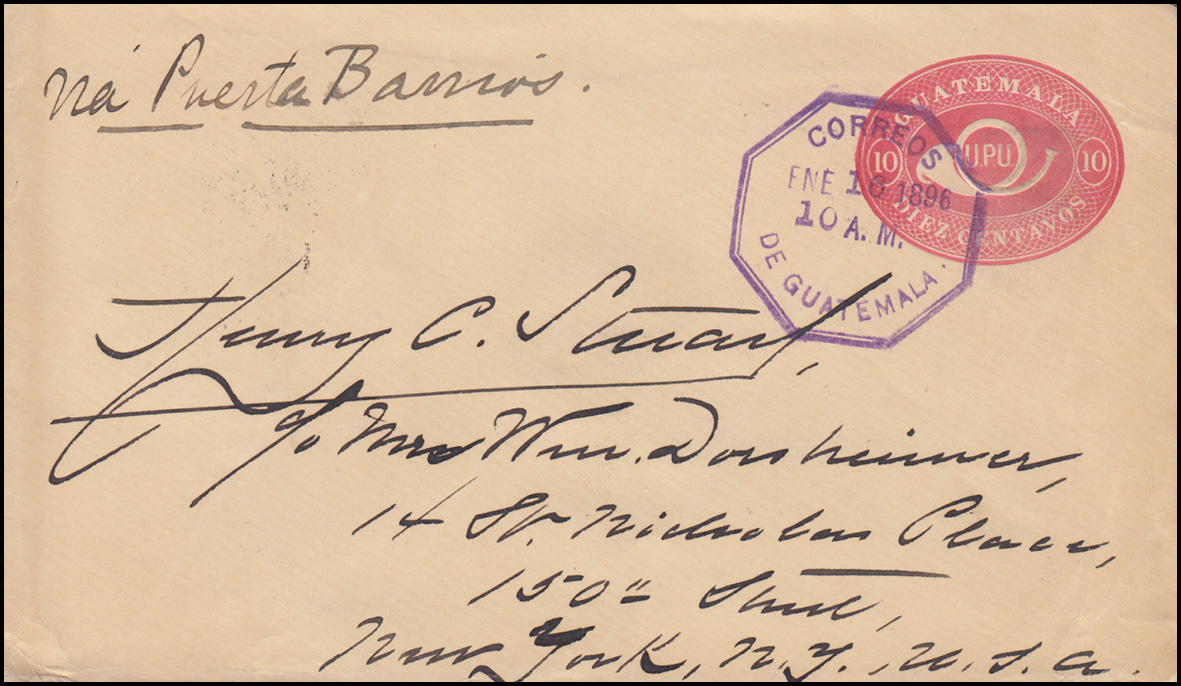 via Puerta Barrios.
GUATEMALA
10 U.P.U. 10
DIEZ CENTAVOS
CORREOS
ENE 16 1896
10 A. M.
DE GUATEMALA.
Henry C. Stuart,
c/o Mrs Wm. Dorsheimer,
14 St. Nicholas Place,
150" Street,
New York, N.Y., U.S.A.